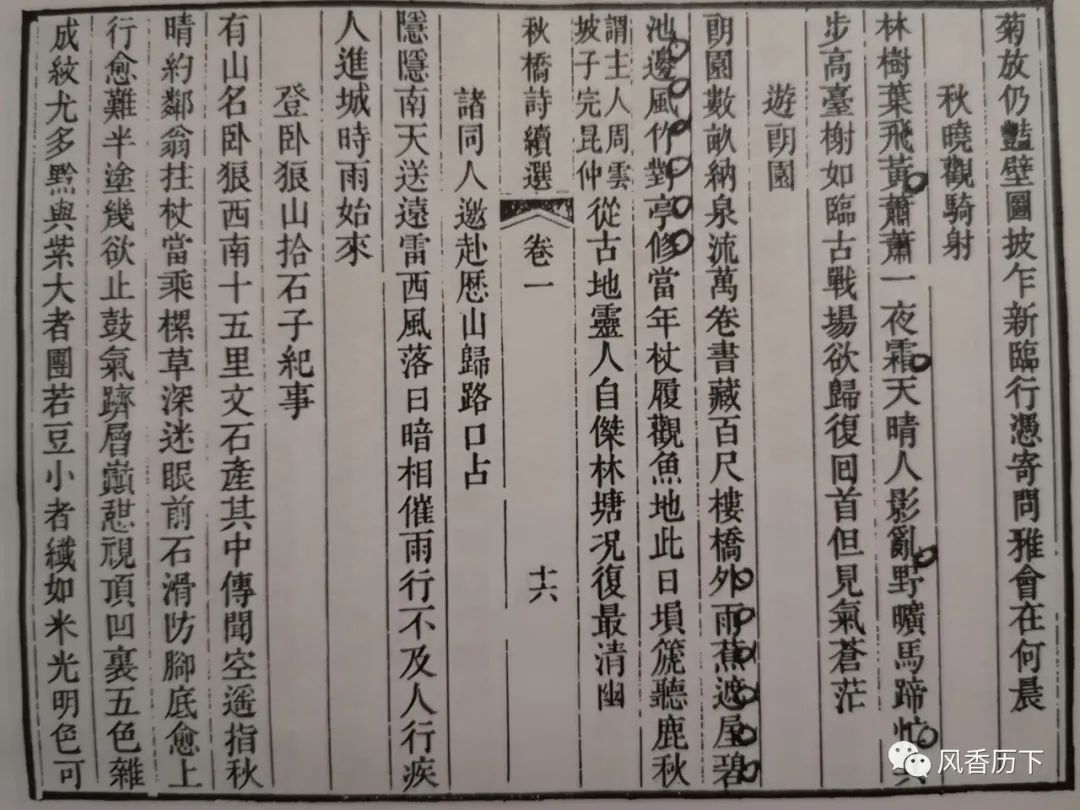 菊放仍豔壁圖披乍新臨行憑寄問雅會在何晨
秋曉觀騎射
林樹葉飛黃蕭蕭一夜霜天晴人影亂野曠馬蹄忙
步高臺榭如臨古戰場欲歸復囘首但見氣蒼茫
遊朗園
朗園數畝納泉流萬卷書藏百尺樓橋外雨蕉遮屋碧
池邊風竹對亭修當年杖履觀魚地此日塤箎聽鹿秋
謂主人周雲
坡子完昆仲
從古地靈人自傑林塘況復最清幽
秋橋詩續選
卷一
十六
諸同人邀赴歷山歸路口占
隱隱南天送遠雷西風落日暗相催雨行不及人行疾
人進城時雨始來
登卧狼山拾石子紀事
有山名卧狼西南十五里文石產其中傳聞空遥指秋
晴約鄰翁拄杖當乘樏草深迷眼前石滑防腳底愈上
行愈難半塗幾欲止鼓氣躋層巔憇視頂凹裏五色雜
成紋尤多黔與紫大者團若豆小者纖如米光明色可
风香历下